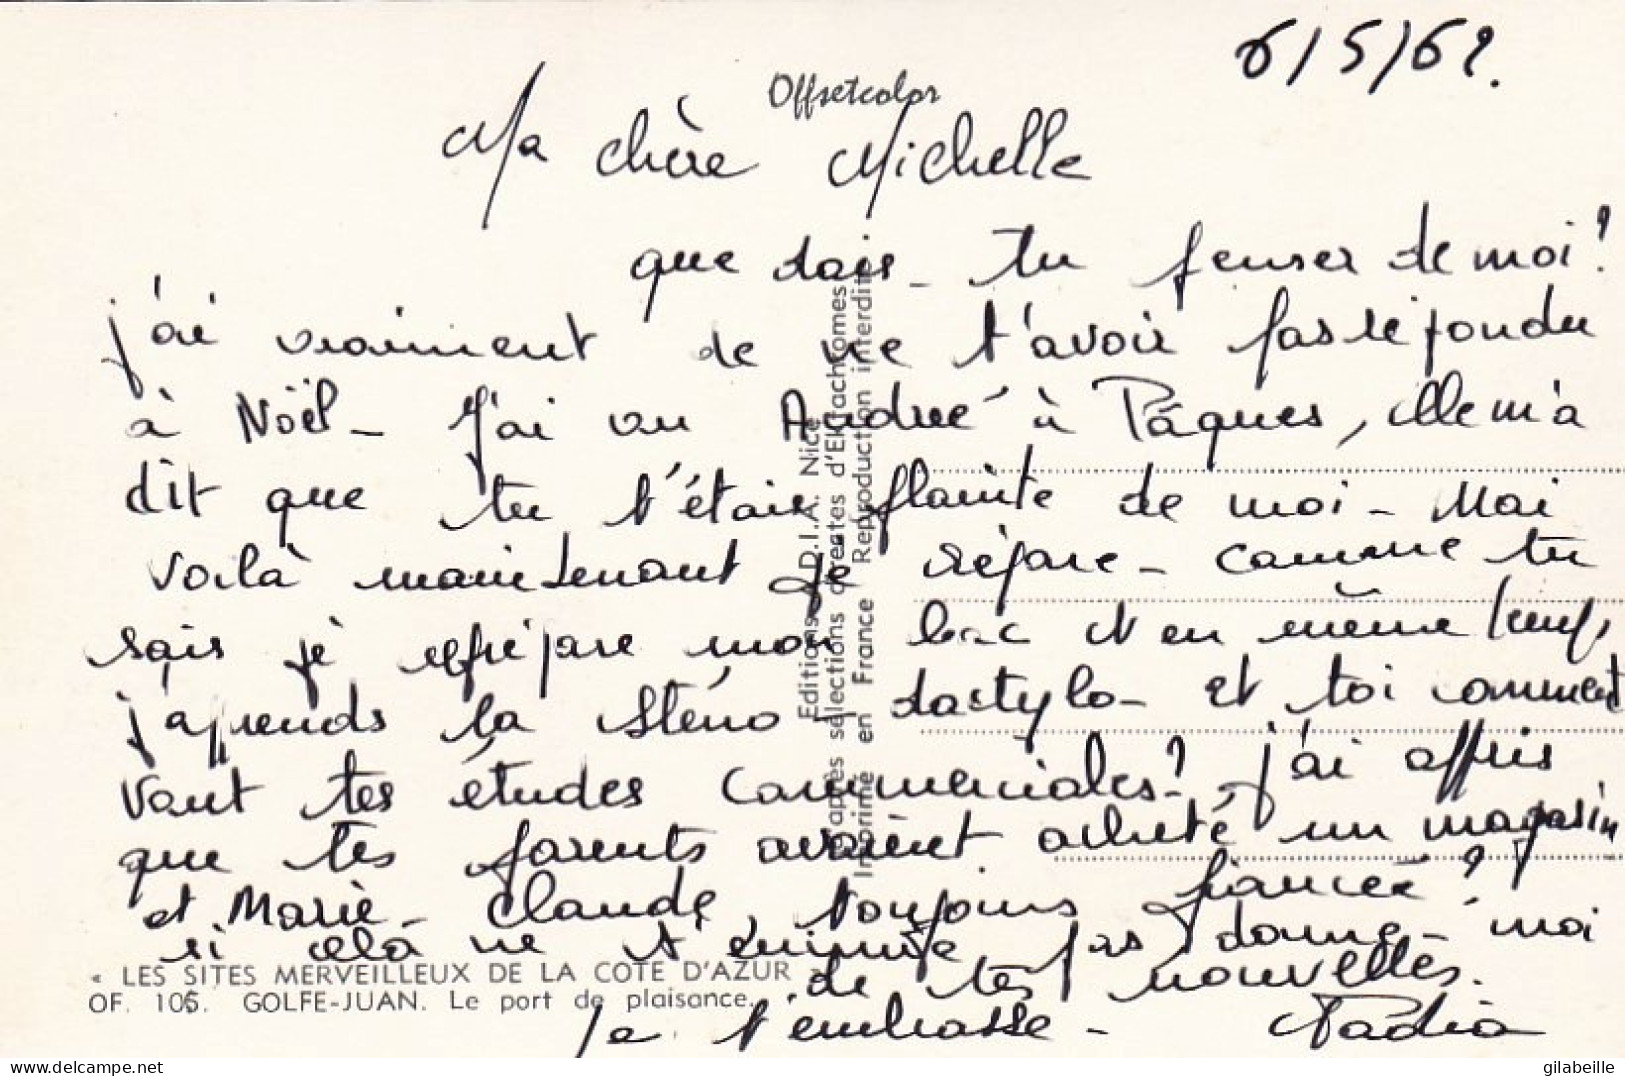 6/5/62.
Offsetcolor
Ma chère Michelle
que dois-tu penser de moi!
j'ai vraiment de ne t'avoir pas répondu
à Noël - J'ai vu Andrée à Pâques, elle m'a
dit que tu t'étais plainte de moi - Mai
voilà maintenant je répare - comme tu
sais je prépare mon bac et en même temps
j'apprends la sténo dactylo - et toi comment
vont tes études commerciales? j'ai appris
que tes parents avaient acheté un magasin
et Marie-Claude, toujours fiancée?
si cela ne t'ennuie pas donne-moi
de tes nouvelles.
Je t'embrasse - Nadia
Editions D.I.A. Nice
D'après sélections directes d'Ektachromes
Imprimé en France Reproduction interdite
« LES SITES MERVEILLEUX DE LA COTE D'AZUR »
OF. 105. GOLFE-JUAN. Le port de plaisance.
delcampe.net
gilabeille